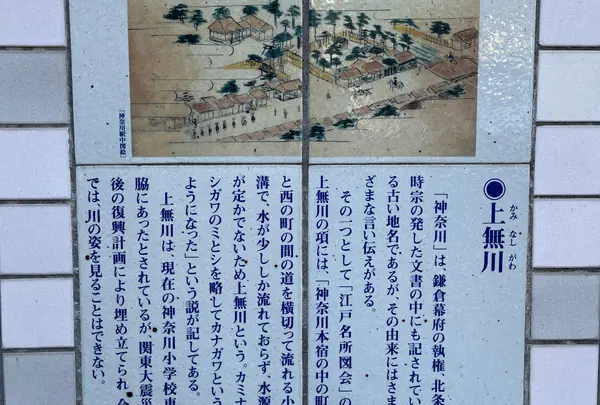 ◉上無川
かみ なし がわ
「神奈川」は、鎌倉幕府の執権、北条
時宗の発した文書の中にも記されてい
る古い地名であるが、その由来にはさま
ざまな言い伝えがある。
その一つとして「江戸名所図会」の
上無川の項には、「神奈川本宿の中の町
と西の町の間の道を横切って流れる小
溝で、水が少ししか流れておらず、水源
が定かでないため上無川という。カミナ
シガワのミとシを略してカナガワという
ようになった」という説が記してある。
上無川は、現在の神奈川小学校東
脇にあったとされているが、関東大震災
後の復興計画により埋め立てられ、今
では、川の姿を見ることはできない。
「神奈川駅中図絵」